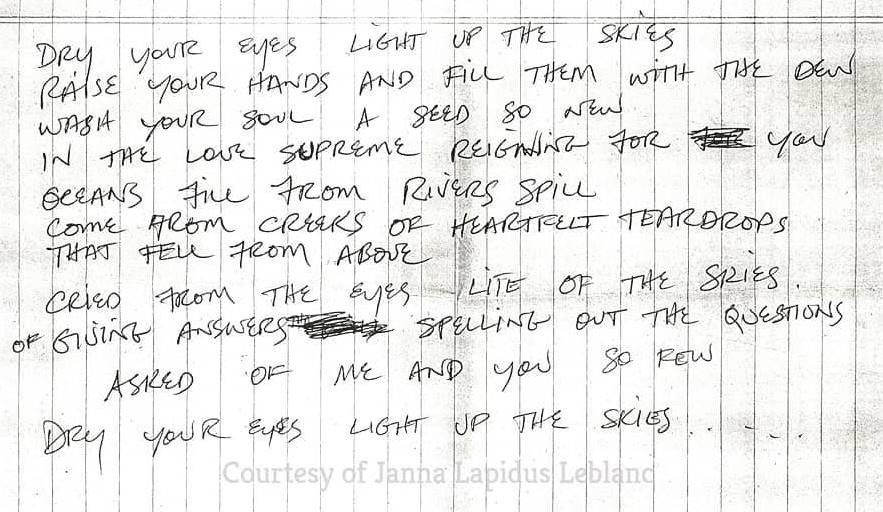 DRY YOUR EYES LIGHT UP THE SKIES
RAISE YOUR HANDS AND FILL THEM WITH THE DEW
WASH YOUR SOUL A SEED SO NEW
IN THE LOVE SUPREME REIGNING FOR YOU
OCEANS FILL FROM RIVERS SPILL
COME FROM CREEKS OF HEARTFELT TEARDROPS
THAT FELL FROM ABOVE
CRIED FROM THE EYES LITE OF THE SKIES.
OF GIVING ANSWERS SPELLING OUT THE QUESTIONS
ASKED OF ME AND YOU SO FEW
DRY YOUR EYES LIGHT UP THE SKIES.....
Courtesy of Janna Lapidus Leblanc